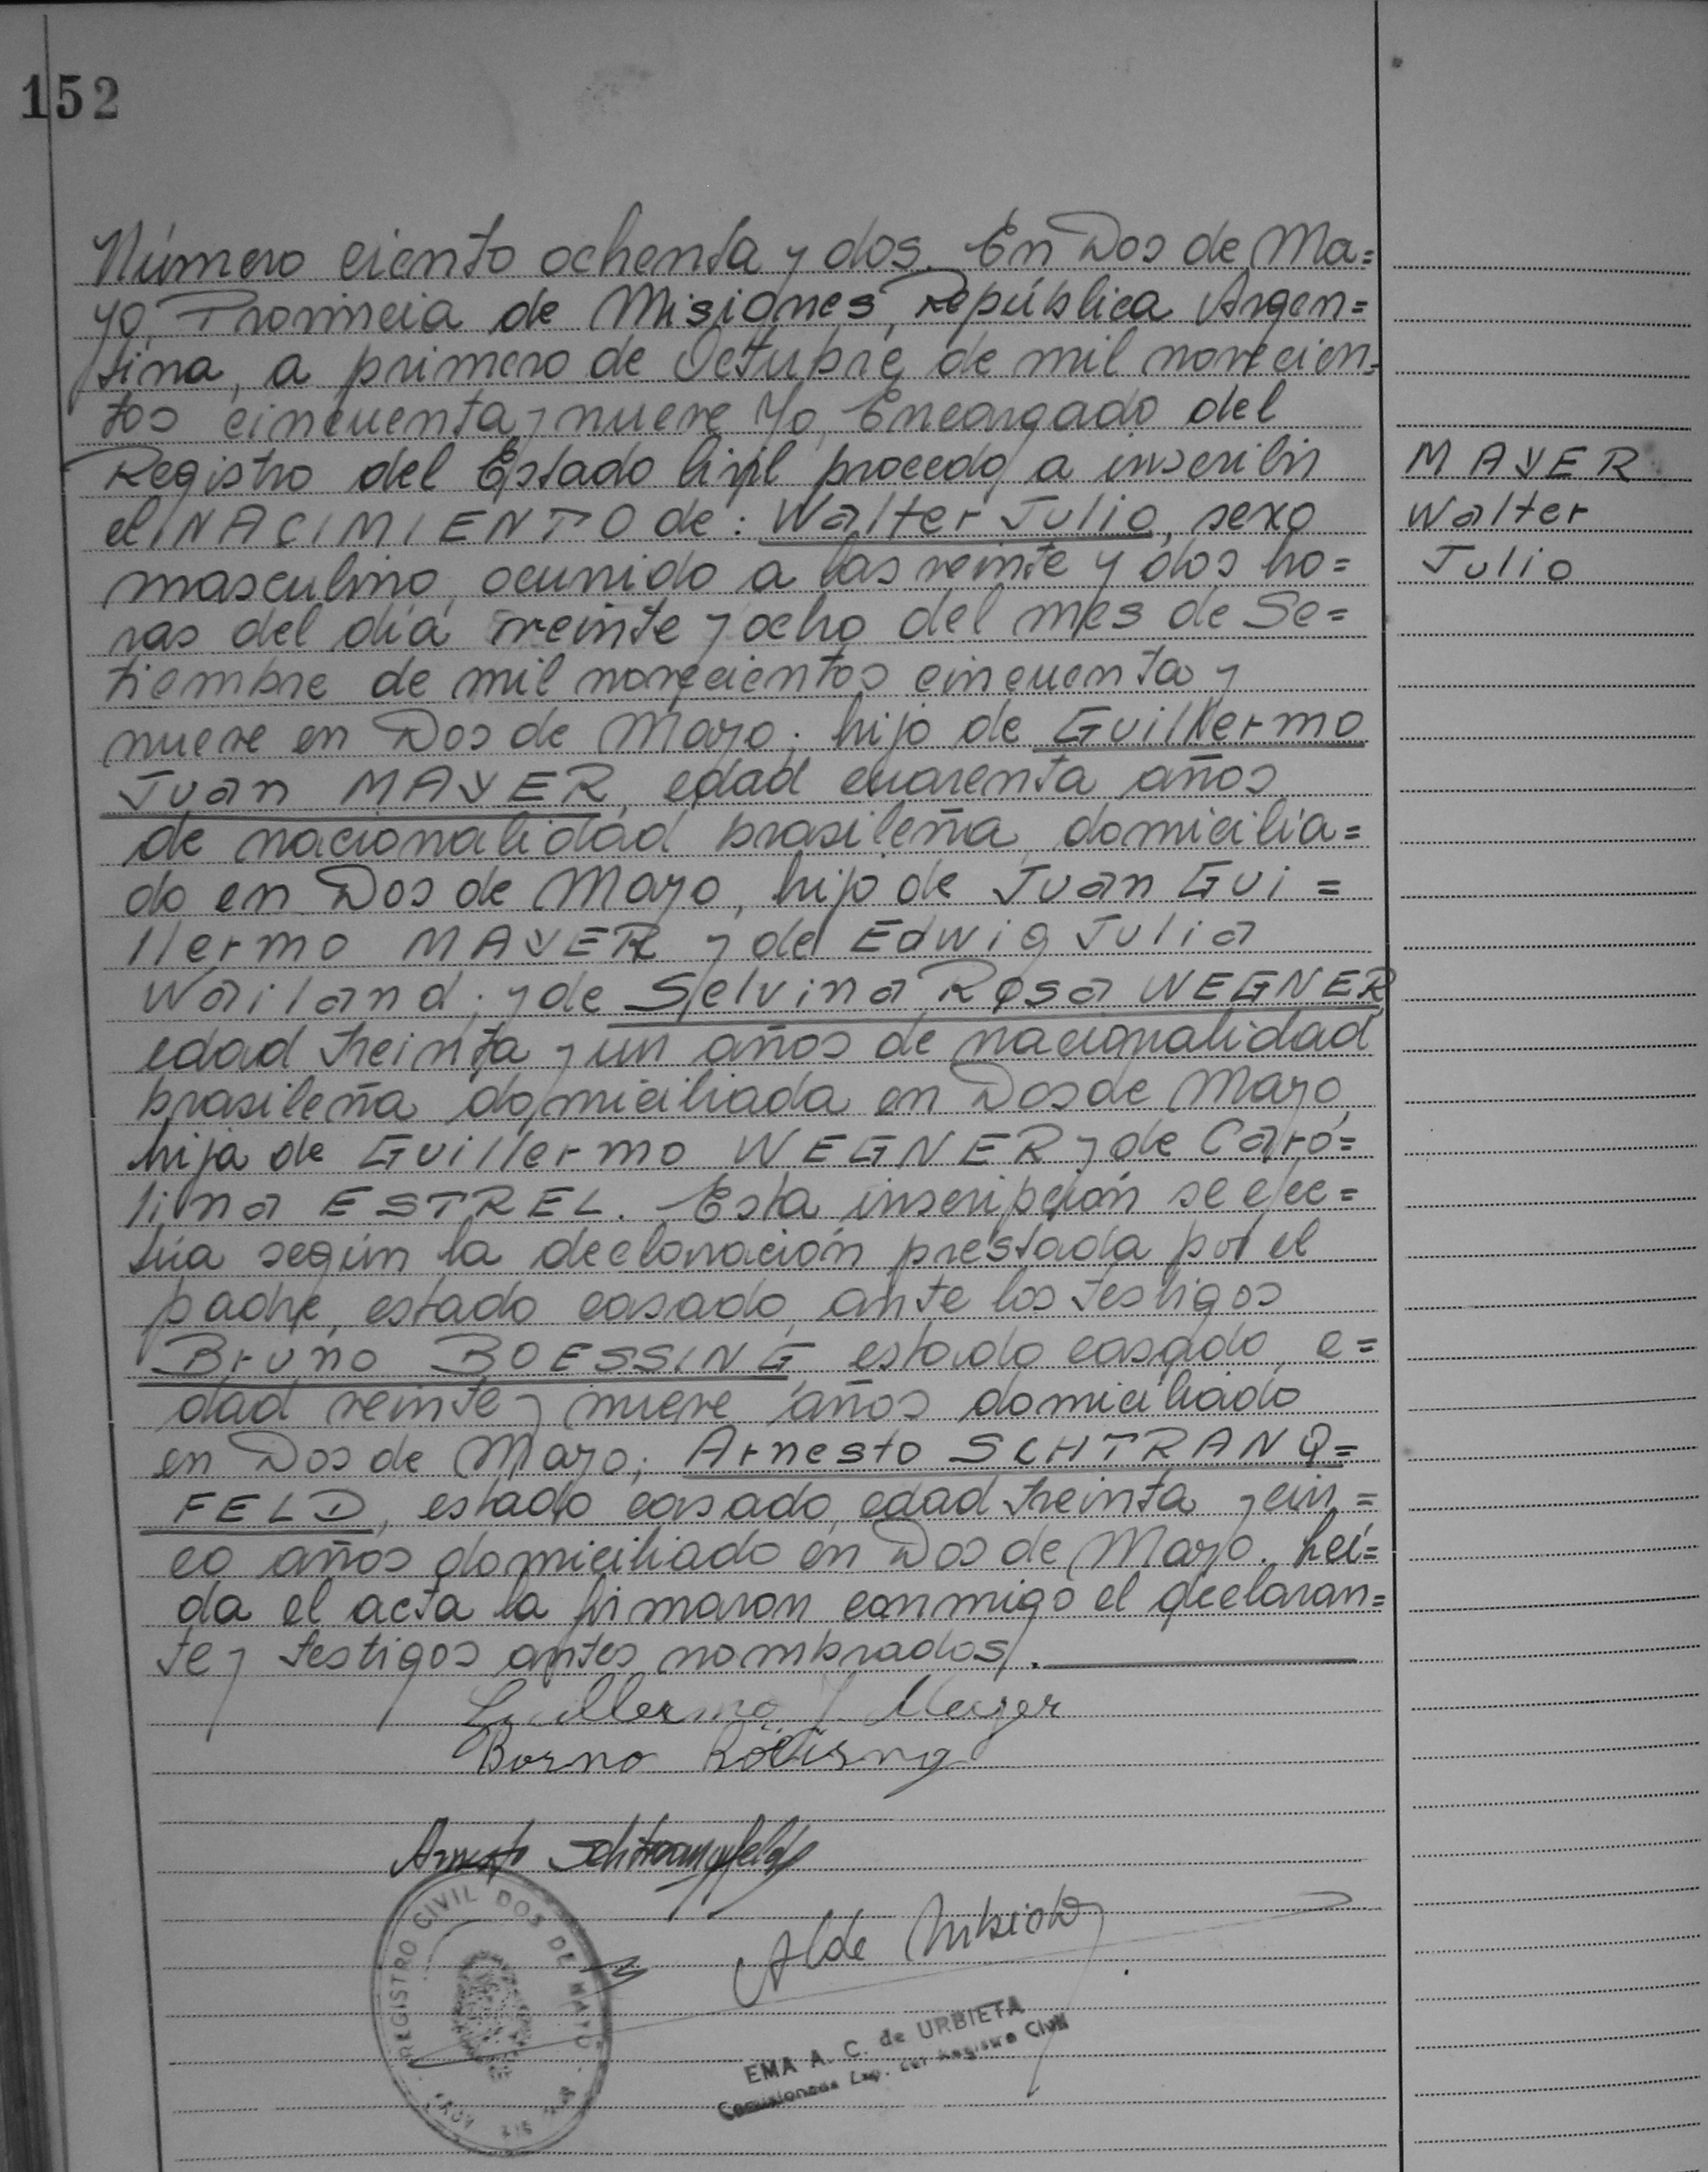 152
Número ciento ochenta y dos. En Dos de Ma=
yo, Provincia de Misiones, República Argen=
tina, a primero de Octubre de mil novecien=
tos cincuenta y nueve Yo, Encargado del
Registro del Estado Civil procedo a inscribir
el NACIMIENTO de: Walter Julio, sexo
masculino, ocurrido a las veinte y dos ho=
ras del día veinte y ocho del mes de Se=
tiembre de mil novecientos cincuenta y
nueve en Dos de Mayo; hijo de Guillermo
Juan MAYER, edad cuarenta años
de nacionalidad brasileña, domicilia=
do en Dos de Mayo, hijo de Juan Gui=
llermo MAYER y de Edwig Julia
Wailand; y de Selvina Rosa WEGNER,
edad treinta y un años de nacionalidad
brasileña domiciliada en Dos de Mayo,
hija de Guillermo WEGNER y de Caro=
lina ESTREL. Esta inscripción se efec=
túa según la declaración prestada por el
padre, estado casado, ante los testigos
Bruno BOESSING, estado casado, e=
dad veinte y nueve años domiciliado
en Dos de Mayo; Arnesto SCHTRANQ=
FELD, estado casado, edad treinta y cin=
co años domiciliado en Dos de Mayo. Leí=
da el acta la firmaron conmigo el declaran=
te y testigos antes nombrados.
MAYER
Walter
Julio
Guillermo J. Mayer
Borno
Arnesto
A C de Urbieta
REGISTRO CIVIL DOS DE MAYO
EMA A. C. de URBIETA
Registro Civil